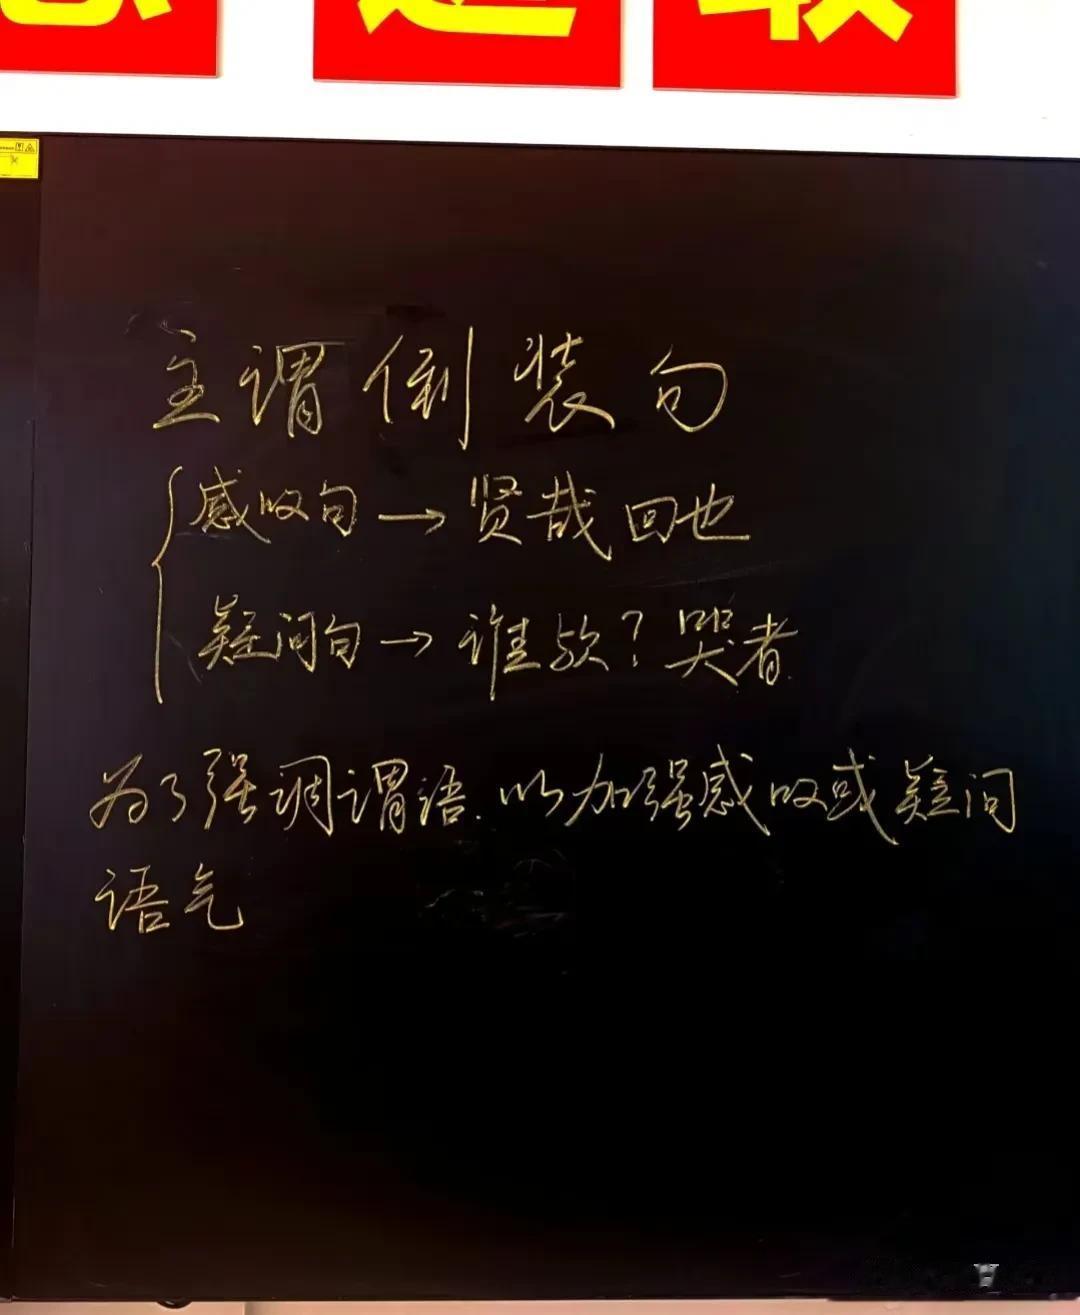 进取
主谓倒装句
感叹句→贤哉回也
疑问句→谁欤？哭者
为了强调谓语.以加强感叹或疑问
语气